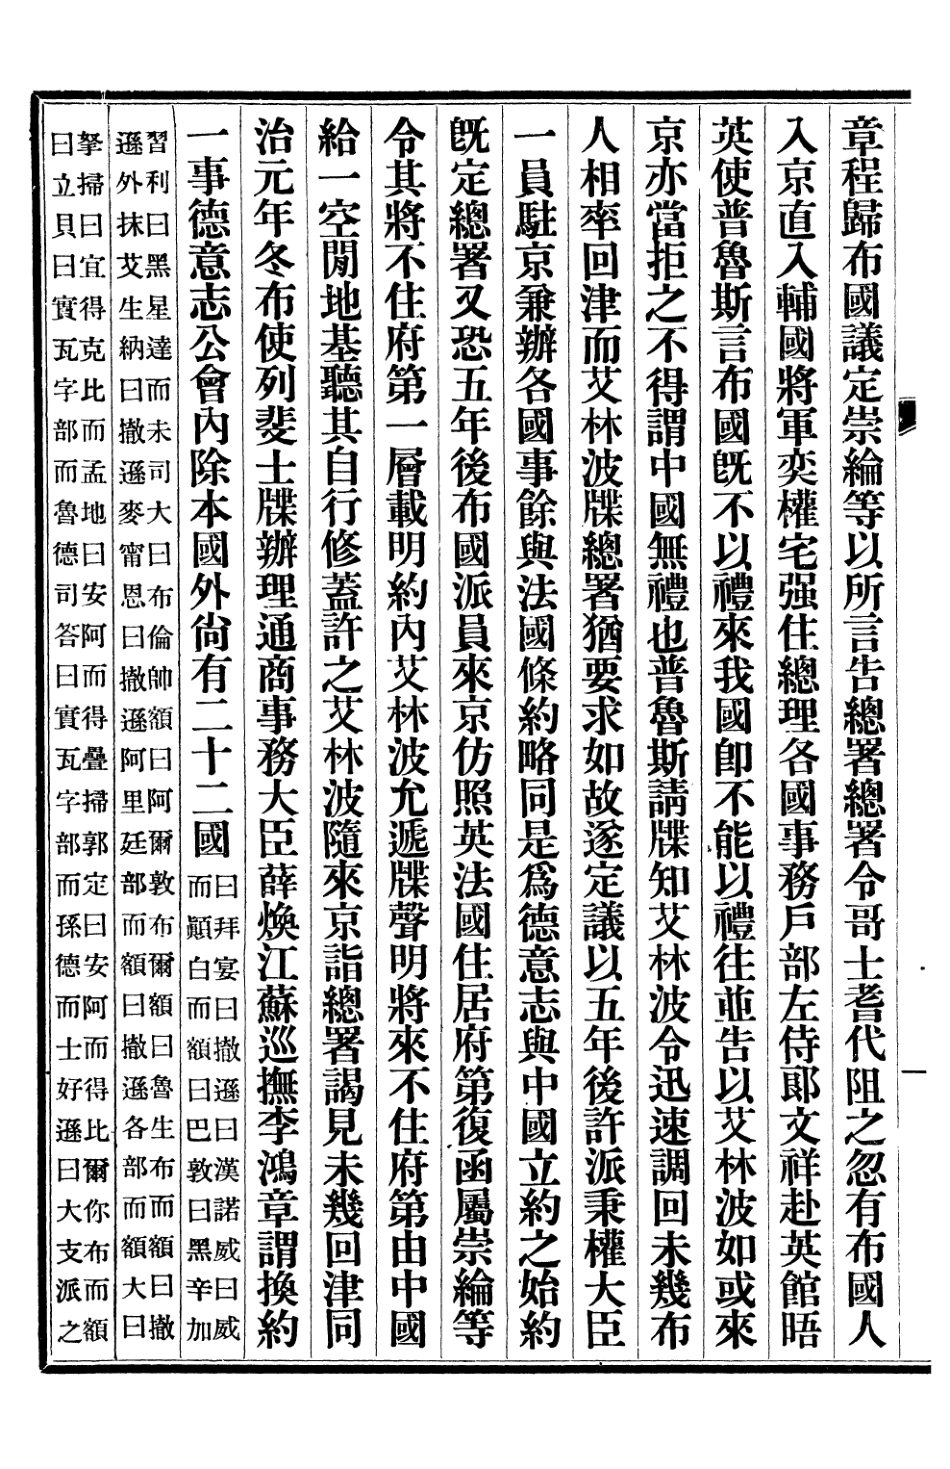 章程歸布國議定崇綸等以所言告總署總署令哥士耆代阻之忽有布國人
入京直入輔國將軍奕權宅强住總理各國事務戶部左侍郞文祥赴英館晤
英使普魯斯言布國旣不以禮來我國卽不能以禮往並告以艾林波如或來
京亦當拒之不得謂中國無禮也普魯斯請牒知艾林波令迅速調回未幾布
人相率回津而艾林波牒總署猶要求如故遂定議以五年後許派秉權大臣
一員駐京兼辦各國事餘與法國條約略同是爲德意志與中國立約之始約
旣定總署又恐五年後布國派員來京仿照英法國住居府第復函屬崇綸等
令其將不住府第一層載明約內艾林波允遞牒聲明將來不住府第由中國
給一空閒地基聽其自行修蓋許之艾林波隨來京詣總署謁見未幾回津同
治元年冬布使列斐士牒辦理通商事務大臣薛煥江蘇巡撫李鴻章謂換約
一事德意志公會內除本國外尙有二十二國曰拜宴曰撒遜曰漢諾威曰威
而顚白而額曰巴敦曰黑辛加
習利曰黑星達而未司大曰布倫帥額曰阿爾敦布爾額曰魯生布而額曰撒
遜外抹艾生納曰撒遜麥甯恩曰撒遜阿里廷部而額曰撒遜各部而額大曰
拏掃曰宜得克比而孟地曰安阿而得疊掃郭定曰安阿而得比爾你布而額
曰立貝曰實瓦字部而魯德司答曰實瓦字部而孫德而士好遜曰大支派之